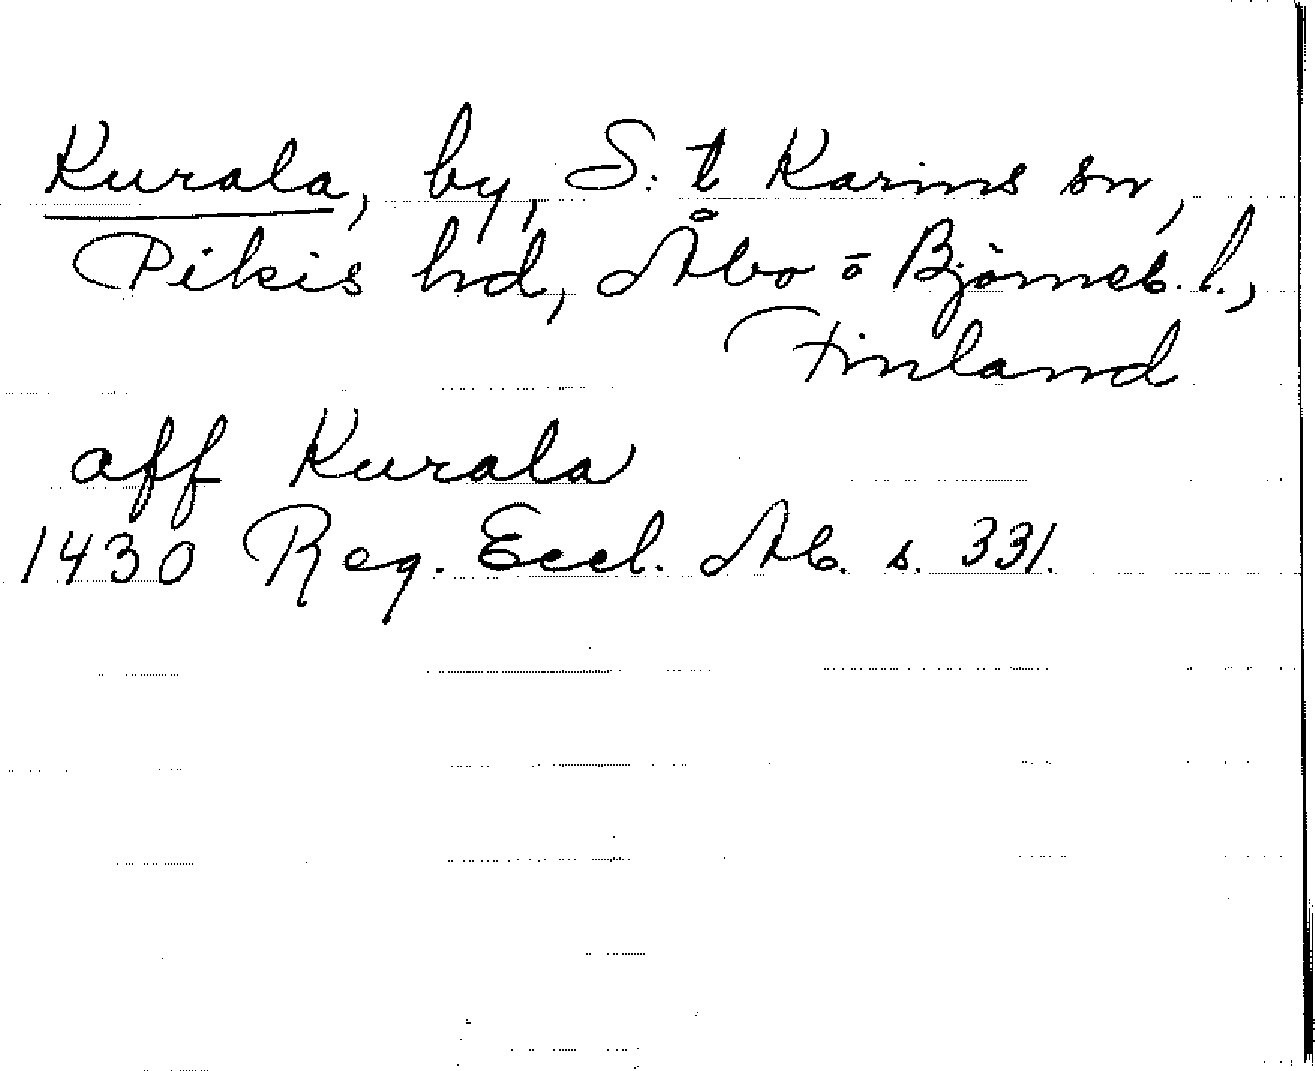 Kurala, by, S:t Karins sn,
Pikis hd, Åbo o Björneb. l.,
Finland
aff Kurala
1430 Reg. Eccl. Ab. s. 331.